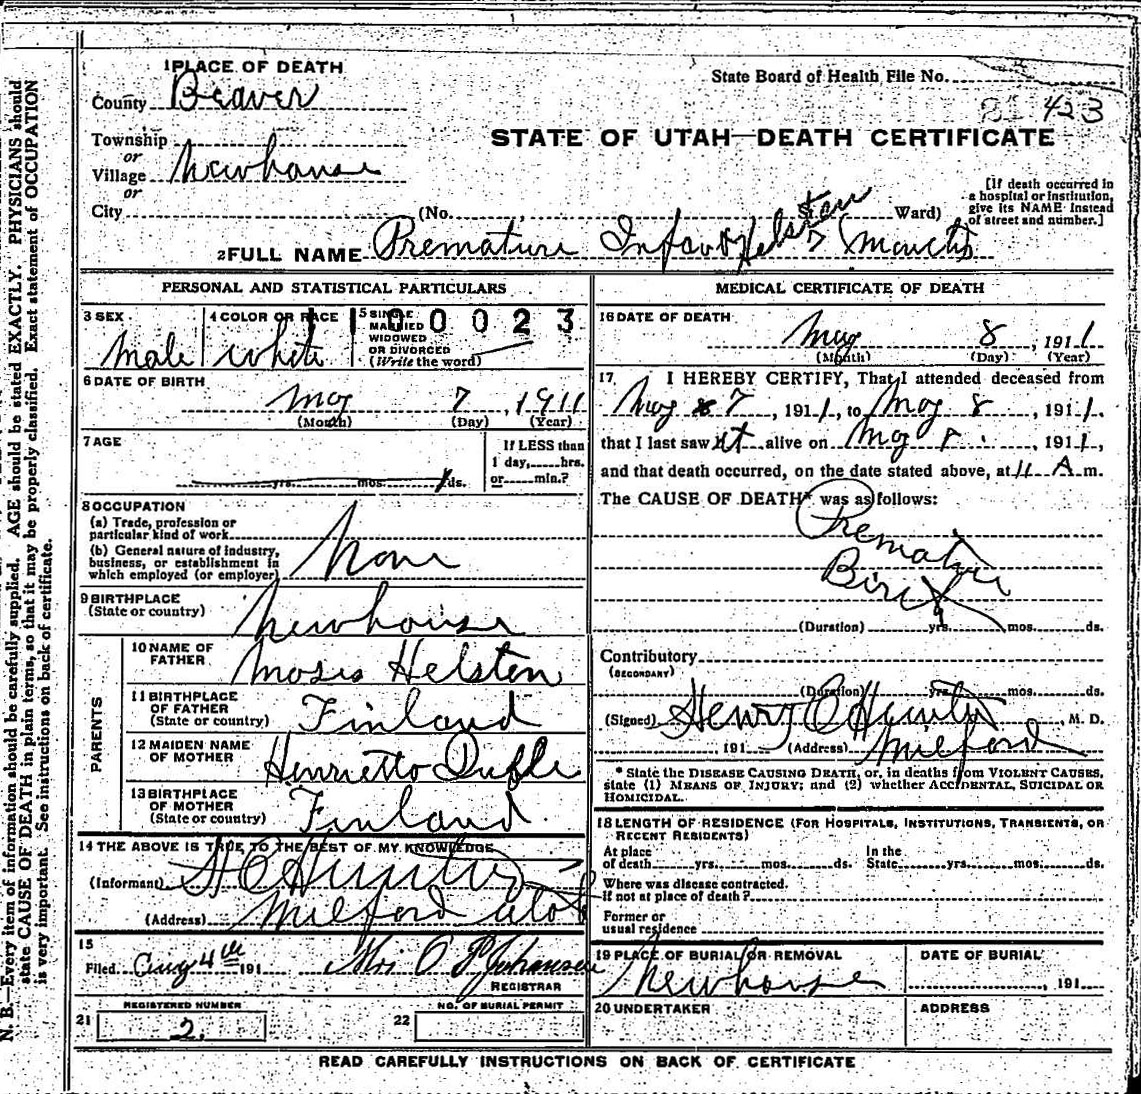 N. B.—Every item of information should be carefully supplied. AGE should be stated EXACTLY. PHYSICIANS should
state CAUSE OF DEATH in plain terms, so that it may be properly classified. Exact statement of OCCUPATION
is very important. See instructions on back of certificate.
1 PLACE OF DEATH
State Board of Health File No.
County Beaver
423
STATE OF UTAH—DEATH CERTIFICATE
Township
or
Village Newhouse
or
City (No. Ward)
[If death occurred in
a hospital or institution,
give its NAME instead
of street and number.]
2 FULL NAME Premature Infant Helsten 7 months
PERSONAL AND STATISTICAL PARTICULARS
3 SEX Male
4 COLOR OR RACE white
5 SINGLE
MARRIED
WIDOWED
OR DIVORCED
(Write the word)
100023
6 DATE OF BIRTH
May 7 1911
(Month) (Day) (Year)
7 AGE
yrs. mos. 1 ds.
If LESS than
1 day, hrs.
or min.?
8 OCCUPATION
(a) Trade, profession or
particular kind of work
(b) General nature of industry,
business, or establishment in
which employed (or employer)
None
9 BIRTHPLACE
(State or country) Newhouse
PARENTS
10 NAME OF
FATHER Moses Helsten
11 BIRTHPLACE
OF FATHER
(State or country) Finland
12 MAIDEN NAME
OF MOTHER Henrietto
13 BIRTHPLACE
OF MOTHER
(State or country) Finland
14 THE ABOVE IS TRUE TO THE BEST OF MY KNOWLEDGE
(Informant) H O Hunter
(Address) Milford Utah
15
Filed Aug 4th 191 Mrs O P Johansen
REGISTRAR
REGISTERED NUMBER
21 2.
NO. OF BURIAL PERMIT
22
MEDICAL CERTIFICATE OF DEATH
16 DATE OF DEATH
May 8, 1911
(Month) (Day) (Year)
17 I HEREBY CERTIFY, That I attended deceased from
May 7, 1911, to May 8, 1911.
that I last saw it alive on May 8, 1911,
and that death occurred, on the date stated above, at 11 A m.
The CAUSE OF DEATH* was as follows:
Premature
Birth
(Duration) yrs. mos. ds.
Contributory
(SECONDARY)
(Duration) yrs. mos. ds.
(Signed) Henry O Hunter, M. D.
191 (Address) Milford
* State the DISEASE CAUSING DEATH, or, in deaths from VIOLENT CAUSES,
state (1) MEANS OF INJURY; and (2) whether ACCIDENTAL, SUICIDAL OR
HOMICIDAL.
18 LENGTH OF RESIDENCE (FOR HOSPITALS, INSTITUTIONS, TRANSIENTS, OR
RECENT RESIDENTS)
At place
of death yrs. mos. ds.
In the
State yrs. mos. ds.
Where was disease contracted.
if not at place of death?
Former or
usual residence
19 PLACE OF BURIAL OR REMOVAL
Newhouse
DATE OF BURIAL
, 191
20 UNDERTAKER
ADDRESS
READ CAREFULLY INSTRUCTIONS ON BACK OF CERTIFICATE